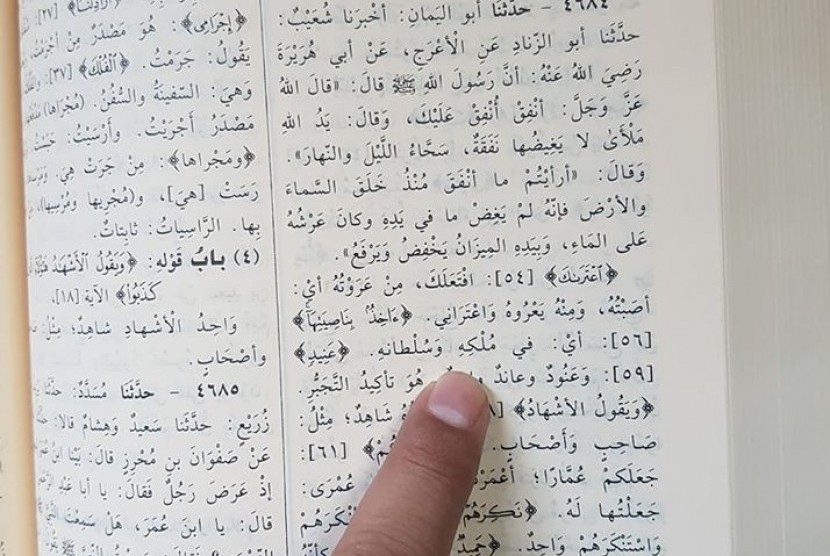 ٤٦٨٤ - حدَّثَنا أبو اليَمانِ: أخْبَرَنا شُعَيْبٌ:
حدَّثَنا أبو الزِّنادِ عَنِ الأعْرَجِ، عَنْ أبي هُرَيْرَةَ
رَضِيَ اللهُ عَنْهُ: أنَّ رَسُولَ اللهِ ﷺ قالَ: «قالَ اللهُ
عَزَّ وَجَلَّ: أنْفِقْ أُنْفِقْ عَلَيْكَ، وَقالَ: يَدُ اللهِ
مَلْأَىٰ لا يَغِيضُها نَفَقَةٌ، سَحَّاءُ اللَّيْلَ والنَّهارَ».
وَقالَ: «أرأيْتُمْ ما أنْفَقَ مُنْذُ خَلَقَ السَّماءَ
والأرْضَ فإنَّهُ لمْ يَغِضْ ما في يَدِهِ وكانَ عَرْشُهُ
عَلى المَاءِ، وَبِيَدِهِ المِيزَانُ يَخْفِضُ وَيَرْفَعُ».
﴿اعْتَرَىٰكَ﴾ [٥٤]: افْتَعَلَكَ، مِنْ عَرَوْتُهُ أيْ:
أصَبْتُهُ، وَمِنْهُ يَعْرُوهُ وَاعْتَرَانِي. ﴿ءَاخِذٌ بِنَاصِيَتِهَا﴾
[٥٦]: أيْ: في مُلْكِهِ وَسُلْطانِهِ. ﴿عَنِيدٍ﴾
[٥٩]: وَعَنُودٌ وعانِدٌ هُوَ تأكِيدُ التَّجَبُّرِ.
﴿وَيَقُولُ الأشْهَادُ﴾ شَاهِدٌ؛ مِثْلُ:
صَاحِبٍ وَأصْحَابٍ. [٦١]:
جَعَلَكمْ عُمَّارًا؛ أعْمَرْ عُمْرَى:
جَعَلْتُها لَهُ. ﴿نَكِرَهُمْ
وَاسْتَنْكَرَهُمْ وَاحِدٌ. ﴿حَمِيدٌ
[٢٧]
﴿إِجْرَامِي﴾: هُوَ مَصْدَرٌ مِنْ أجْرَمْتُ،
يَقُولُ: جَرَمْتُ. ﴿الْفُلْكَ﴾ [٣٧]:
وَهِيَ: السَّفِينَةُ والسُّفُنُ. (مُجْرَاها)
مَصْدَرُ أجْرَيْتُ. وأرْسَيْتُ: حَبَسْتُ.
﴿ومَجْراها﴾: مِنْ جَرَتْ هِيَ.
رَسَتْ [هِيَ]، و(مُجْرِيها ومُرْسِيها)،
بِها. الرَّاسِياتُ: ثابِتاتٌ.
(٤) بابُ قَوْلِهِ: ﴿وَيَقُولُ الْأَشْهَادُ هَٰؤُلَاءِ
كَذَبُوا﴾ الآية [١٨].
وَاحِدُ الأشْهادِ شاهِدٌ؛ مِثْلُ:
وأصْحَابٍ.
٤٦٨٥ - حدَّثَنا مُسَدَّدٌ: حدَّثَنا
زُرَيْعٍ: حدَّثَنا سَعيدٌ وَهِشامٌ قالا:
عَنْ صَفْوَانَ بنِ مُحْرِزٍ قالَ: بَيْنا ابنُ
إذْ عَرَضَ رَجُلٌ فَقالَ: يا أبا عَبْدِ
قالَ: يا ابنَ عُمَرَ، هَلْ سَمِعْتَ